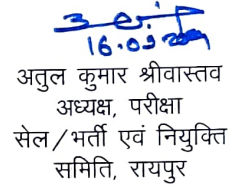 16.09
अतुल कुमार श्रीवास्तव
अध्यक्ष, परीक्षा
सेल/भर्ती एवं नियुक्ति
समिति, रायपुर